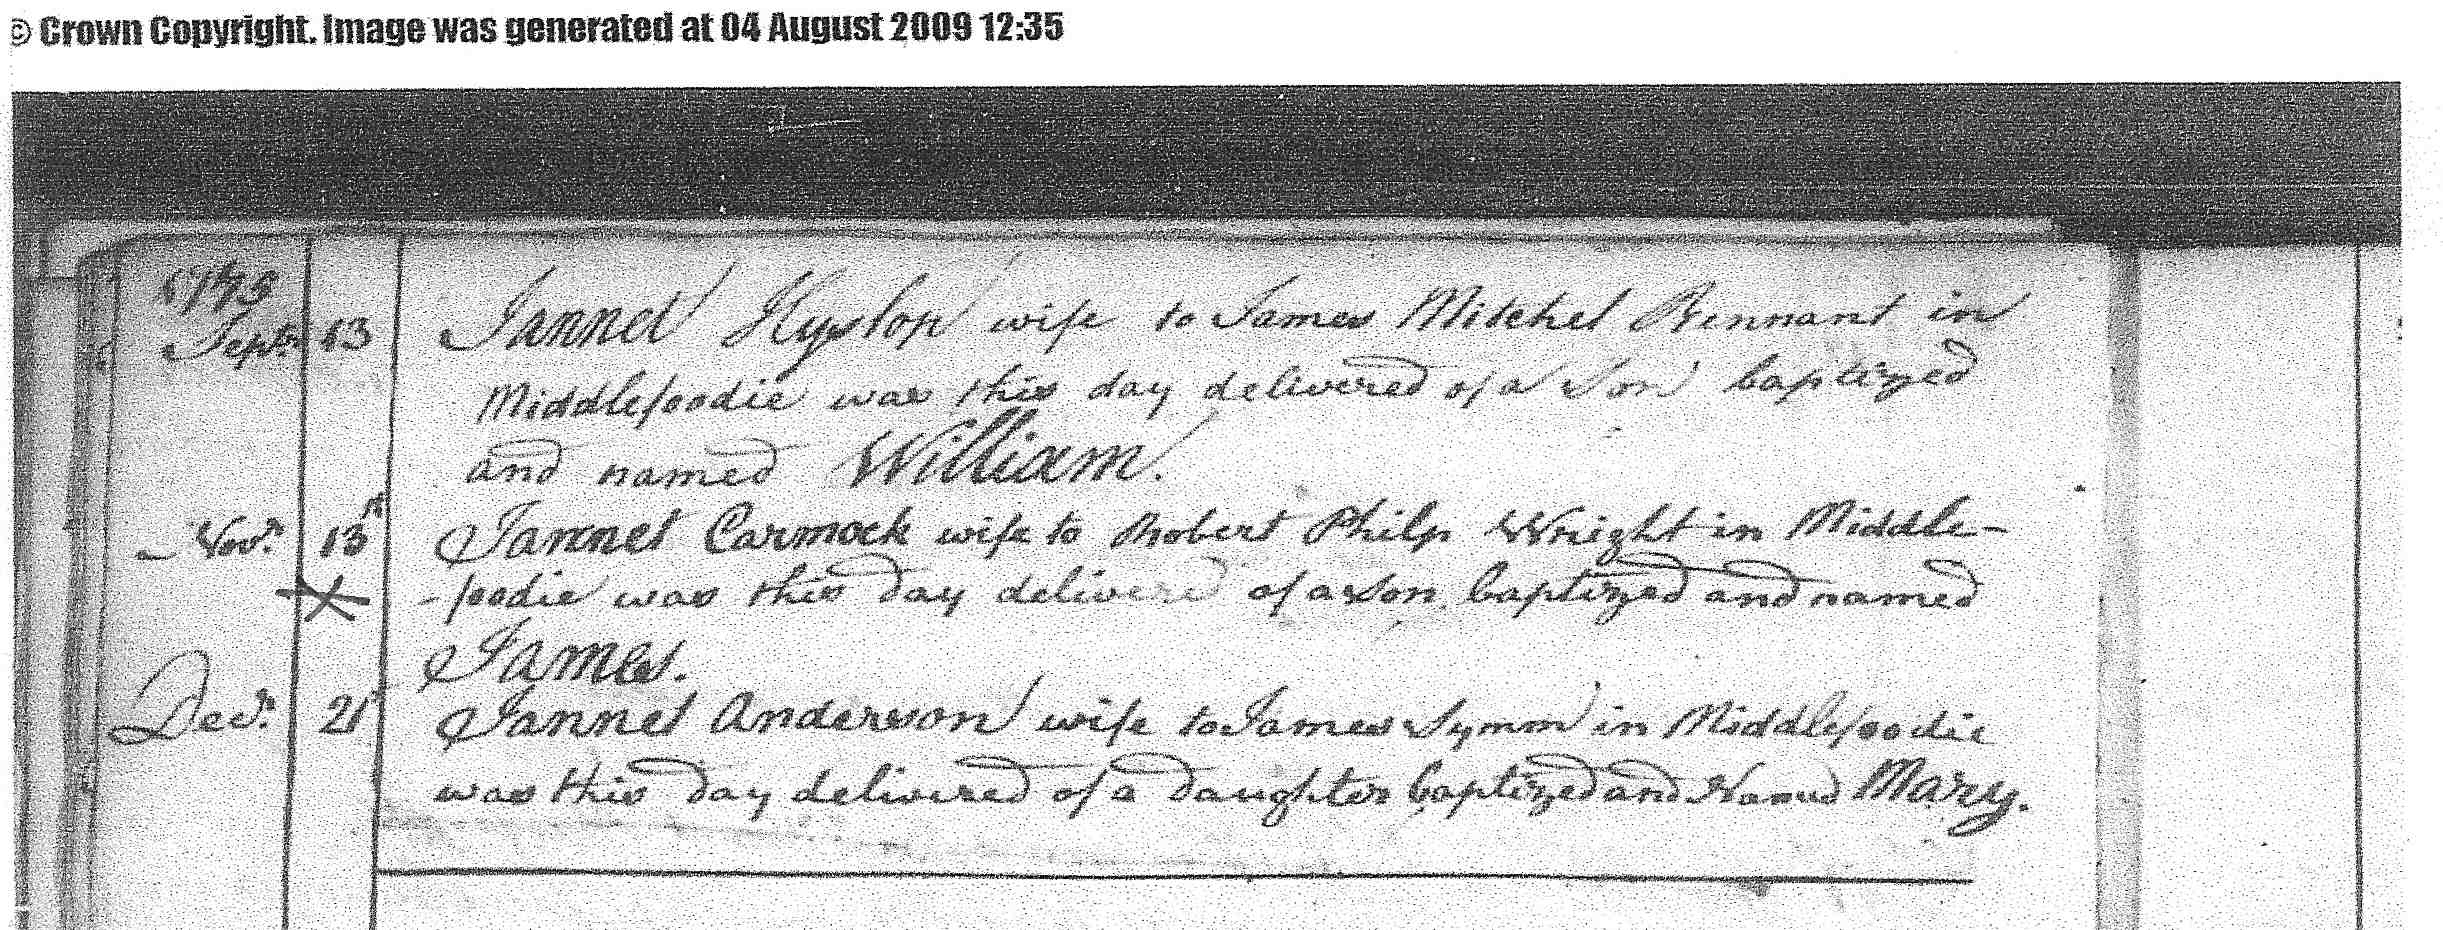 © Crown Copyright. Image was generated at 04 August 2009 12:35
1775
Septr. 13 Jannet Hyslop wife to James Mitchel Tennant in
Middlefoodie was this day delivered of a Son baptized
and named William.
Novr. 13th Jannet Carmock wife to Robert Philp Wright in Middle-
-foodie was this day delivered of a Son baptized and named
James.
Decr. 21st Jannet Anderson wife to James Symm in Middlefoodie
was this day delivered of a daughter baptized and Named Mary.